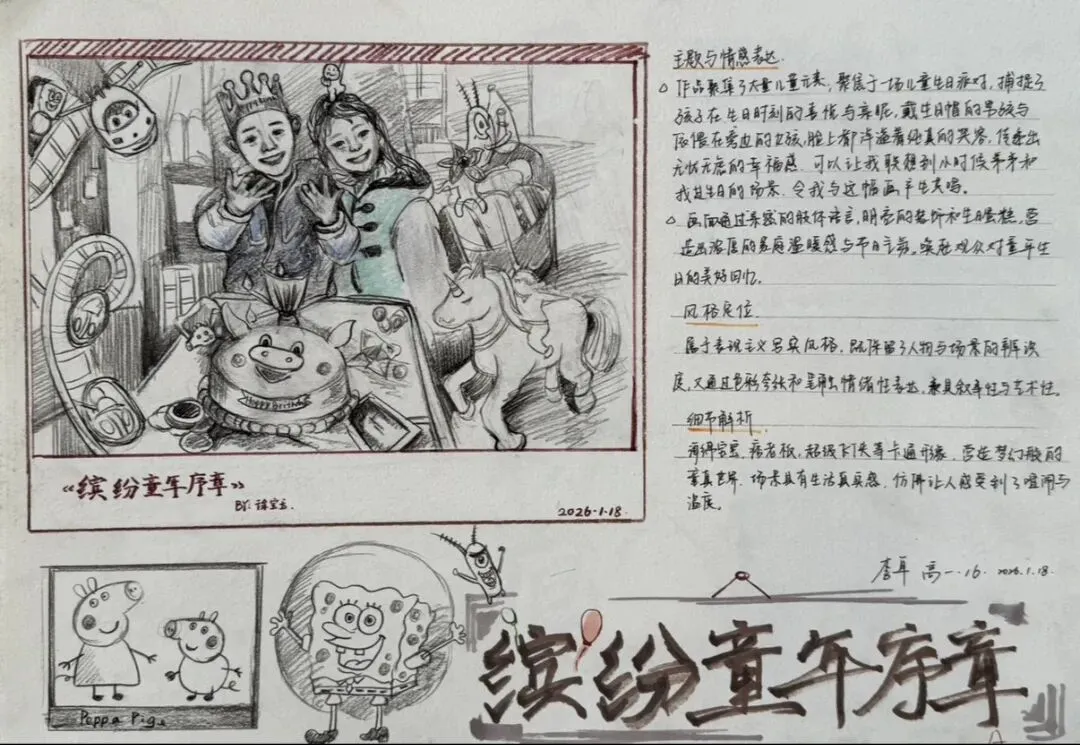 主题与情感表达
作品聚集了大量儿童元素，聚焦于一场儿童生日派对，捕捉了
孩子在生日时刻的喜悦与亲昵，戴生日帽的男孩与
依偎在旁边的女孩，脸上都洋溢着纯真的笑容，传递出
无忧无虑的幸福感，可以让我联想到小时候爷爷和
我过生日的场景，令我与这幅画产生共鸣。
画面通过亲密的肢体语言，明亮的装饰和生日蛋糕，营
造出浓厚的家庭温暖感与节日氛围，唤起观众对童年生
日的美好回忆。
风格定位
属于表现主义写实风格，既保留了人物与场景的辨识
度，又通过色彩夸张和笔触情绪性表达，兼具叙事性与艺术性。
细节解析
海绵宝宝、痞老板、超级飞侠等卡通形象，营造梦幻般的
童真世界，场景具有生活真实感，仿佛让人感受到了喧闹与
温度。
Happy birthday
《缤纷童年序章》
BY:
2026.1.18.
高一.16. 2026.1.18.
Peppa Pig
缤纷童年序章